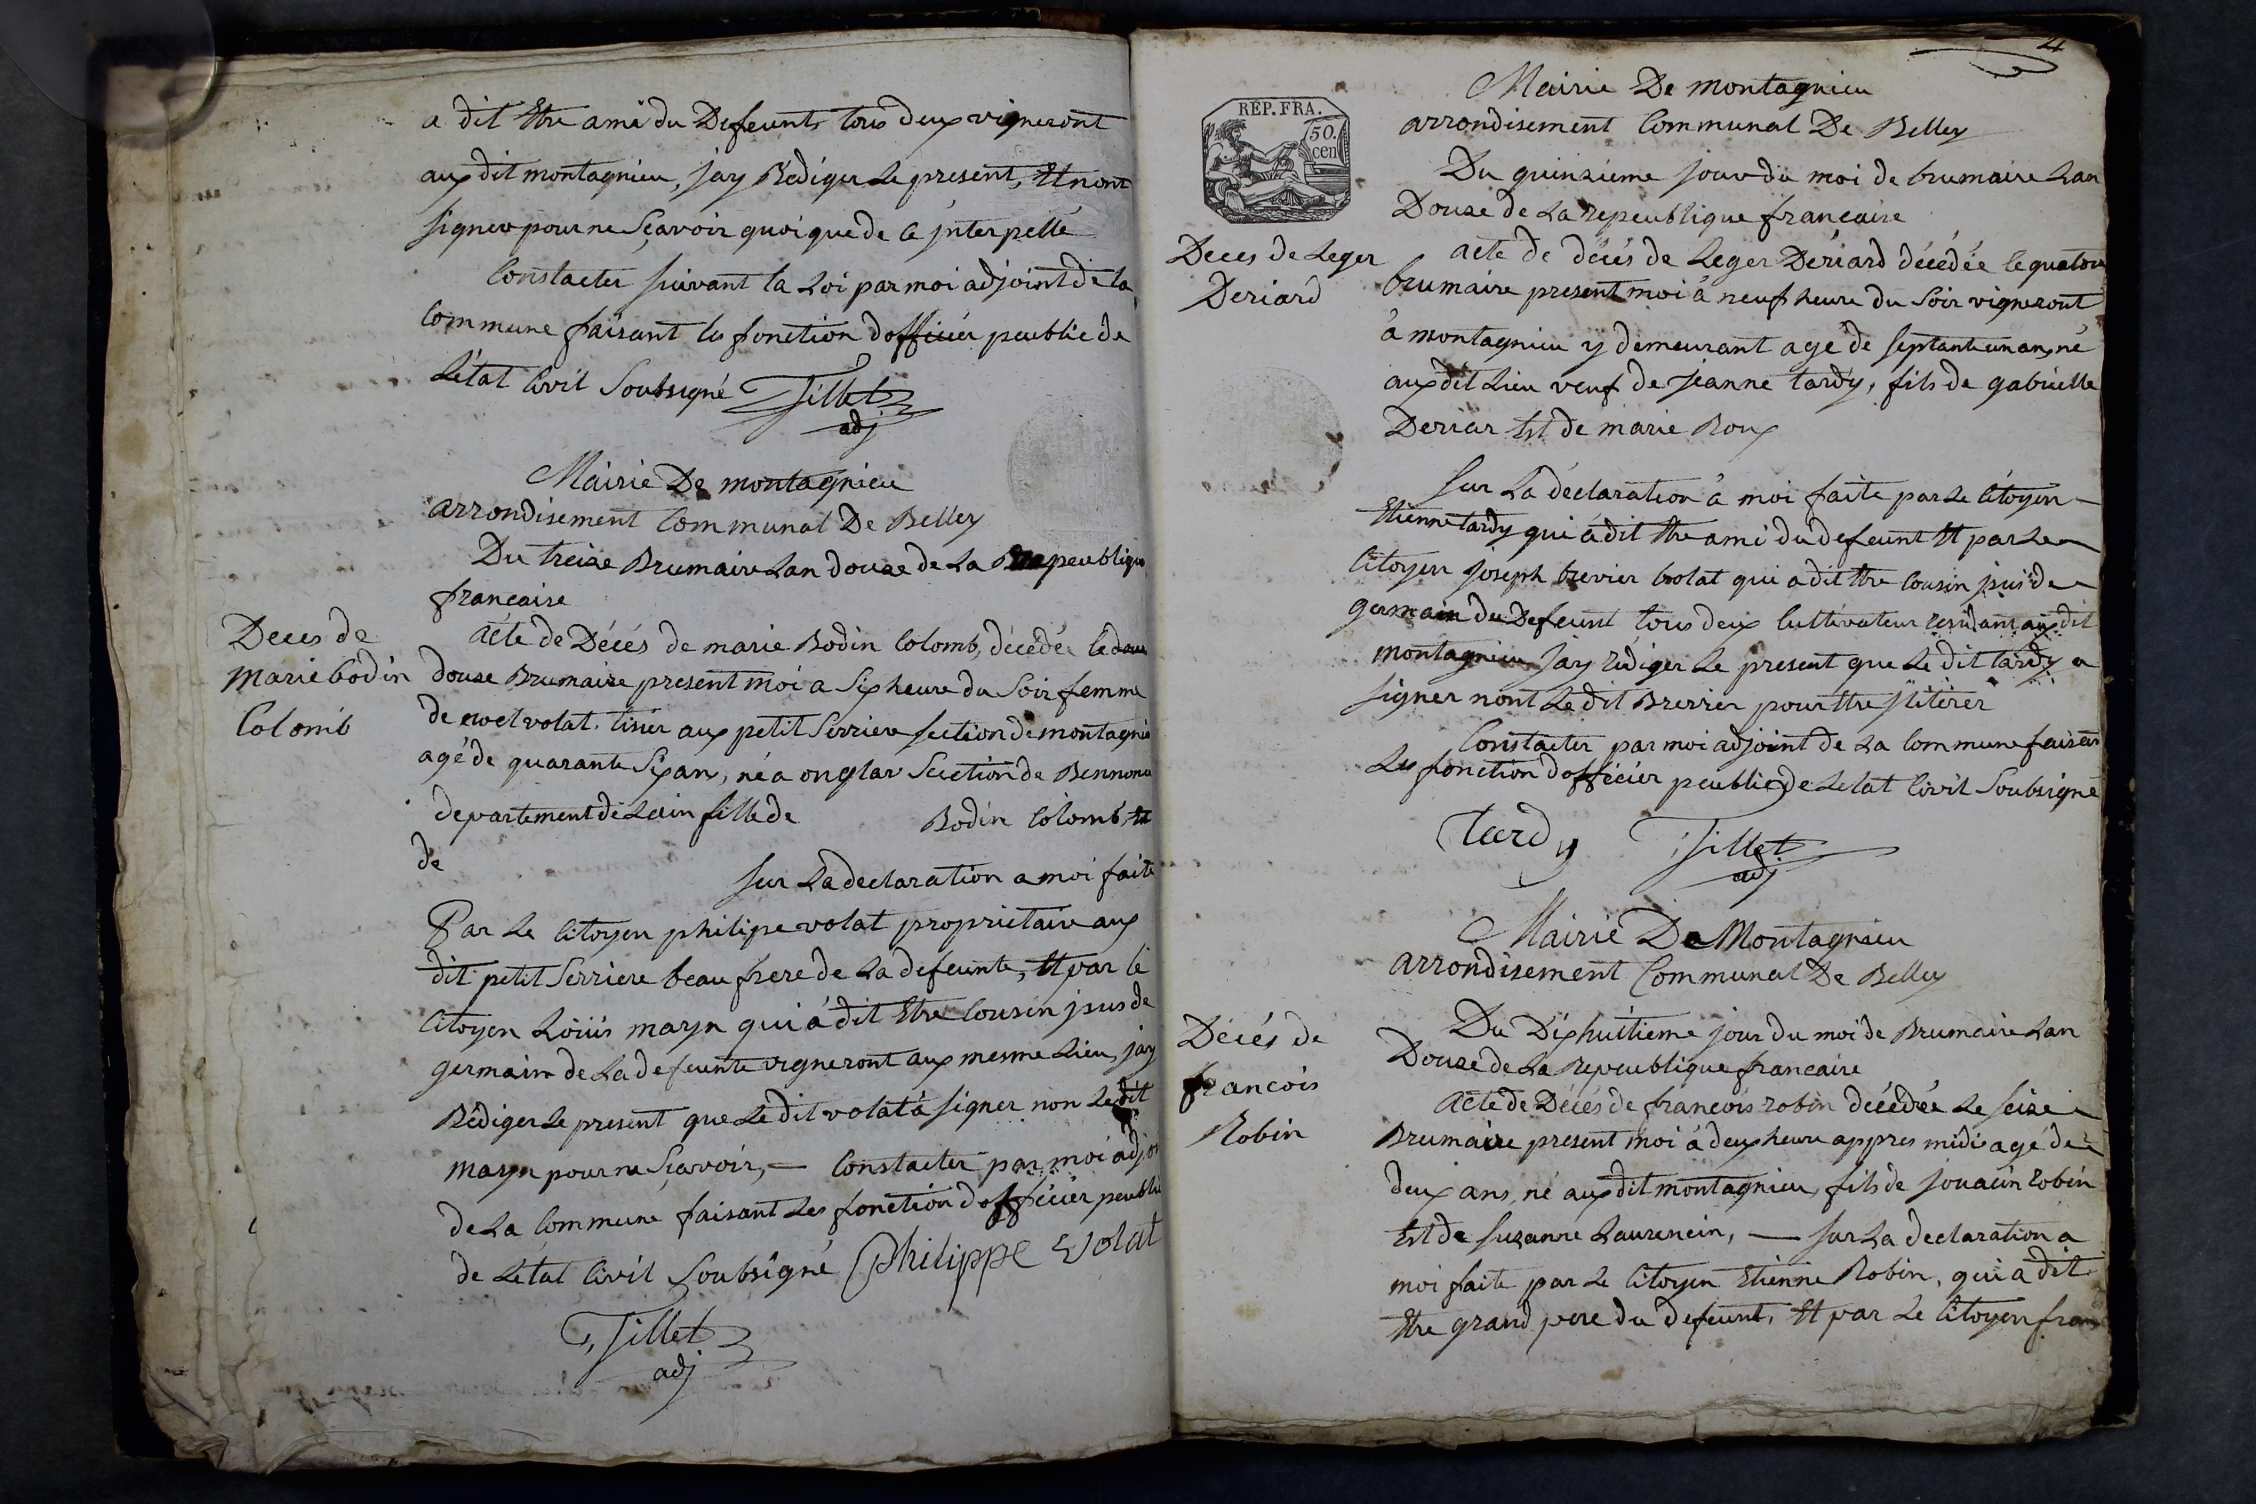 a dit Etre ami du Defeunt, tous deux vigneront
aux dit montagnieu, jay Rédiger Le present, Et nont
signer pour ne Sçavoir quoique de ce jnterpellé
Constacter suivant la Loi par moi adjoint de la
Commune faisant les fonction dofficier peublic de
Létat Civil Soubsigné Tillet
adj
Mairie De montagnieu
arrondisement Communal De Belley
Du treize Brumaire Lan douze de La Repeublique
francaise
Deces de
Marie bodin
Colomb
Acte de Décés de marie Bodin Colomb, décédée le
douze Brumaire present moi a Six heure du Soir femme
de volat tisier aux petit Serriere section de montagnieu
agé de quarante Six an, né a onglas Section de Bennonce
departement de Lain fille de Bodin Colomb, Et
de
sur La declaration a moi faite
Par Le Citoyen philipe volat proprietaire aux
dit petit Serriere beau frere de La defeunte, Et par le
Citoyen Loüis maryn qui á dit Etre Cousin jsus de
germain de La defeunte vigneront aux mesme Lieu, jay
Rédiger Le present que Le dit volat à signer non Le dit
maryn pour ne Sçavoir, — Constacter par moi adjoin
de La Commune faisant Les fonction dofficier peublic
de Létat Civil Soubsigné Philippe Volat
Tillet
adj
4
REP. FRA.
50.
cen
Mairie De montagnieu
arrondisement Communal De Belley
Du quinzieme jour du moi de brumaire Lan
Douze de La repeublique francaise
Deces de Leger
Deriard
acte de décés de Leger Deriard décédée le quatorze
brumaire present moi à neuf heure du Soir vigneront
à montagnieu y demeurant agé de septante un an, né
aux dit Lieu veuf de jeanne tardy, fils de gabrielle
Derriar Est de marie Roux
sur La déclaration à moi faite par Le Citoyen
Etienne tardy qui à dit Etre ami du defeunt Et par Le
Citoyen joseph brevier volat qui a dit Etre Cousin jsus de
germain du Defeunt tous deux Cultivateur residant aux dit
montagnieu jay rédiger Le present que Le dit tardy a
signer nont Le dit Brevier pour Etre jlitérer
Constacter par moi adjoint de La Commune faisant
Les fonction dofficier peublic de Létat Civil Soubsigné
tardy Tillet
adj
Mairie De Montagnieu
arrondisement Communal De Belley
Du Dixhuitieme jour du moi de Brumaire Lan
Douze de La Repeublique francaise
Décés de
francois
Robin
Acte de Décés de francois robin décédée Le seize
Brumaire present moi à deux heure appres midi agé de
deux ans, né aux dit montagnieu, fils de jouacin robin
Est de suzanne Laurencin, — sur La declaration a
moi faite par Le Citoyen Etienne Robin, qui a dit
Etre grand pere du defeunt, Et par Le Citoyen fran